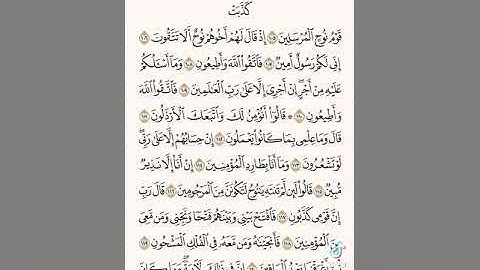 كَذَّبَتْ
قَوْمُ نُوحٍ ٱلْمُرْسَلِينَ ١٠٥ إِذْ قَالَ لَهُمْ أَخُوهُمْ نُوحٌ أَلَا تَتَّقُونَ ١٠٦
إِنِّى لَكُمْ رَسُولٌ أَمِينٌ ١٠٧ فَٱتَّقُوا۟ ٱللَّهَ وَأَطِيعُونِ ١٠٨ وَمَآ أَسْـَٔلُكُمْ
عَلَيْهِ مِنْ أَجْرٍ إِنْ أَجْرِىَ إِلَّا عَلَىٰ رَبِّ ٱلْعَٰلَمِينَ ١٠٩ فَٱتَّقُوا۟ ٱللَّهَ
وَأَطِيعُونِ ١١٠ ۞ قَالُوٓا۟ أَنُؤْمِنُ لَكَ وَٱتَّبَعَكَ ٱلْأَرْذَلُونَ ١١١
قَالَ وَمَا عِلْمِى بِمَا كَانُوا۟ يَعْمَلُونَ ١١٢ إِنْ حِسَابُهُمْ إِلَّا عَلَىٰ رَبِّى ۖ
لَوْ تَشْعُرُونَ ١١٣ وَمَآ أَنَا۠ بِطَارِدِ ٱلْمُؤْمِنِينَ ١١٤ إِنْ أَنَا۠ إِلَّا نَذِيرٌ
مُّبِينٌ ١١٥ قَالُوا۟ لَئِن لَّمْ تَنتَهِ يَٰنُوحُ لَتَكُونَنَّ مِنَ ٱلْمَرْجُومِينَ ١١٦ قَالَ رَبِّ
إِنَّ قَوْمِى كَذَّبُونِ ١١٧ فَٱفْتَحْ بَيْنِى وَبَيْنَهُمْ فَتْحًا وَنَجِّنِى وَمَن مَّعِىَ
مِنَ ٱلْمُؤْمِنِينَ ١١٨ فَأَنجَيْنَٰهُ وَمَن مَّعَهُۥ فِى ٱلْفُلْكِ ٱلْمَشْحُونِ ١١٩
ثُمَّ أَغْرَقْنَا بَعْدُ ٱلْبَاقِينَ ١٢٠ إِنَّ فِى ذَٰلِكَ لَـَٔايَةً ۖ وَمَا كَانَ